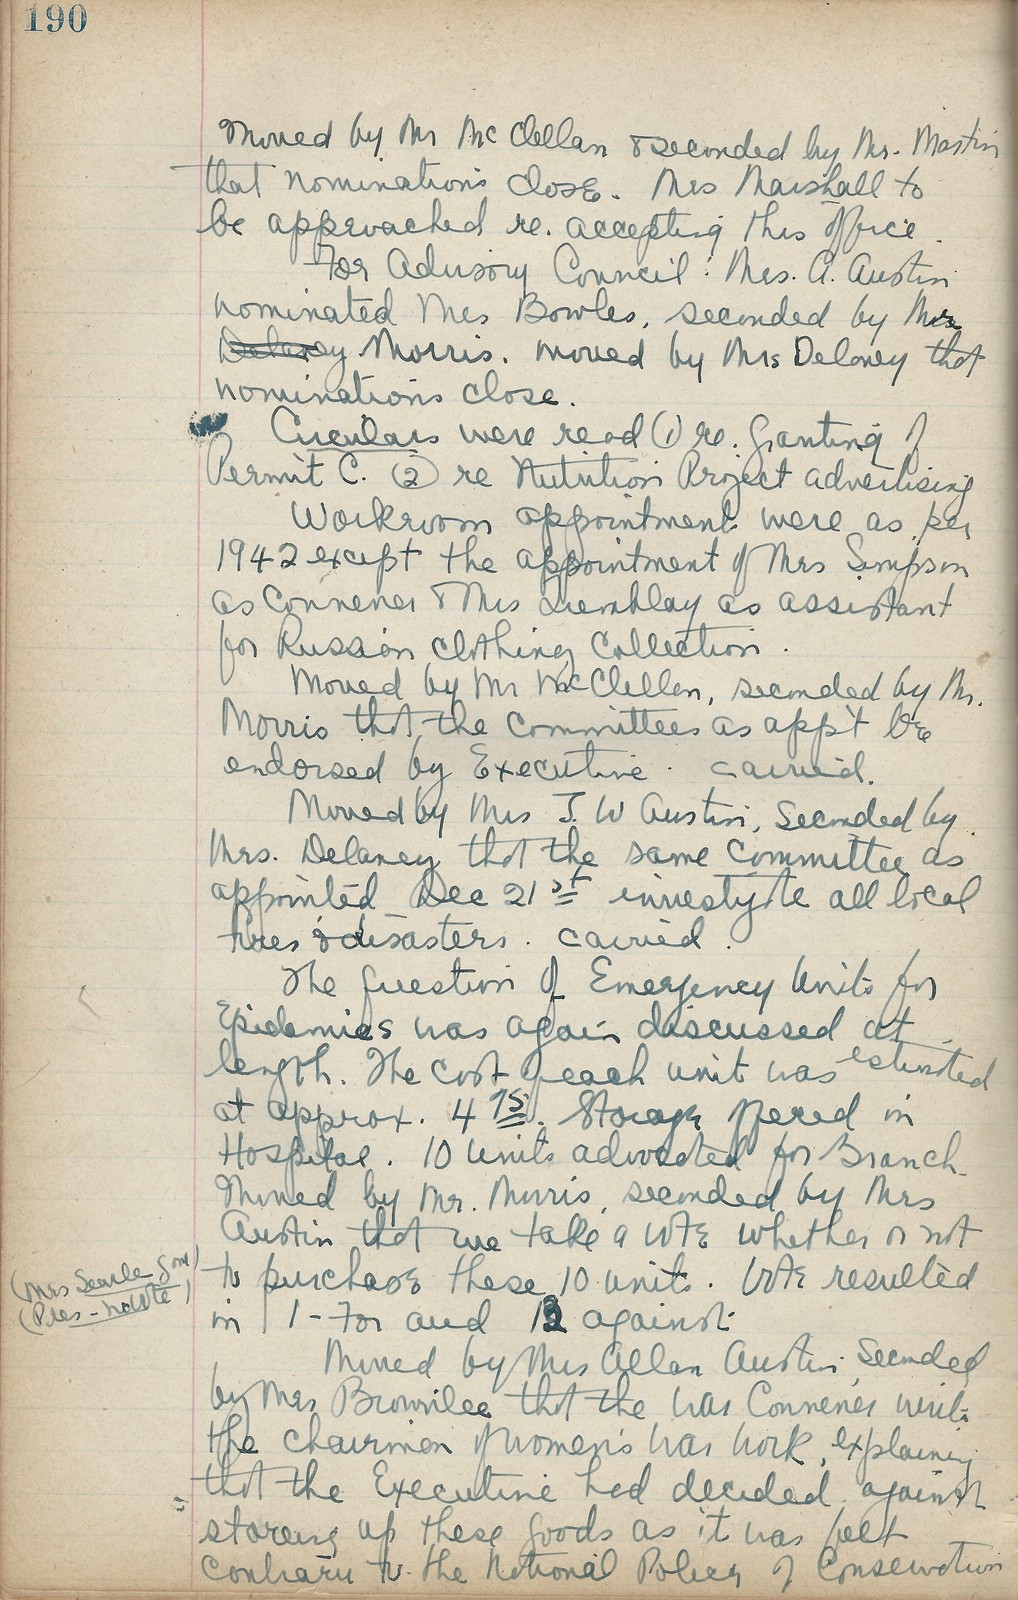 190
Moved by Mr McClellan & seconded by Mr. Martin
that nominations close. Mrs Marshall to
be approached re. accepting this office.
For Advisory Council: Mrs. A. Austin
nominated Mrs Bowles, seconded by Mrs
Delaney Morris. moved by Mrs Delaney that
nominations close.
Circulars were read (1) re. granting of
Permit C. (2) re Nutrition Project advertising
Workroom appointments were as per
1942 except the appointment of Mrs Simpson
as Convener & Mrs Tremblay as assistant
for Russian clothing Collection.
Moved by Mr McClellan, seconded by Mr.
Morris that the committees as app't be
endorsed by Executive. carried.
Moved by Mrs J. W Austin, Seconded by
Mrs. Delaney that the same committee as
appointed Dec 21st investigate all local
fires & disasters. carried.
The question of Emergency Units for
Epidemics was again discussed at
length. The cost of each unit was estimated
at approx. 4 75. Storage offered in
Hospital. 10 units advocated for Branch.
Moved by Mr. Morris, seconded by Mrs
Austin that we take a vote whether or not
to purchase these 10 units. Vote resulted
(Mrs Searle gone)
(Pres - no vote)
in 11 - For and 12 against.
Moved by Mrs Allan Austin, Seconded
by Mrs Brownlee that the War Convener write
the chairman of women's War Work, explaining
that the Executive had decided against
storeing up these goods as it was felt
contrary to the National Policy of Conservation